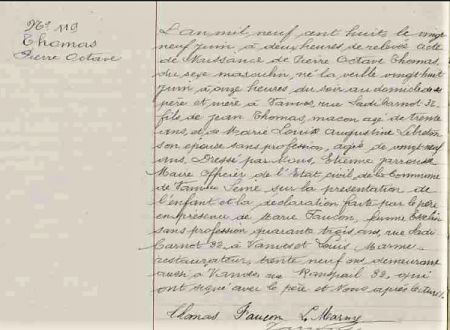 No 119
Thomas
Pierre Octave
L'an mil neuf cent huit le vingt
neuf juin à deux heures de relevée acte
de Naissance de Pierre Octave Thomas,
du sexe masculin, né la veille vingt huit
juin à onze heures du soir au domicile de ses
père et mère à Vanves, rue Sadi Carnot 32
fils de Jean Thomas, maçon agé de trente
ans, et de Marie Louise Augustine Lebreton
son épouse sans profession, agée de vingt neuf
ans. Dressé par Nous, Etienne
Maire Officier de l'Etat civil de la Commune
de Vanves Seine sur la présentation de
l'enfant et la déclaration faite par le père
en présence de Marie Faucon, femme
sans profession quarante trois ans, rue Sadi
Carnot 32 à Vanves et Louis Marmy
restaurateur, trente neuf ans demeurant
aussi à Vanves rue Raspail 32, qui
ont signé avec le père et Nous après lecture.
Thomas Faucon L. Marmy